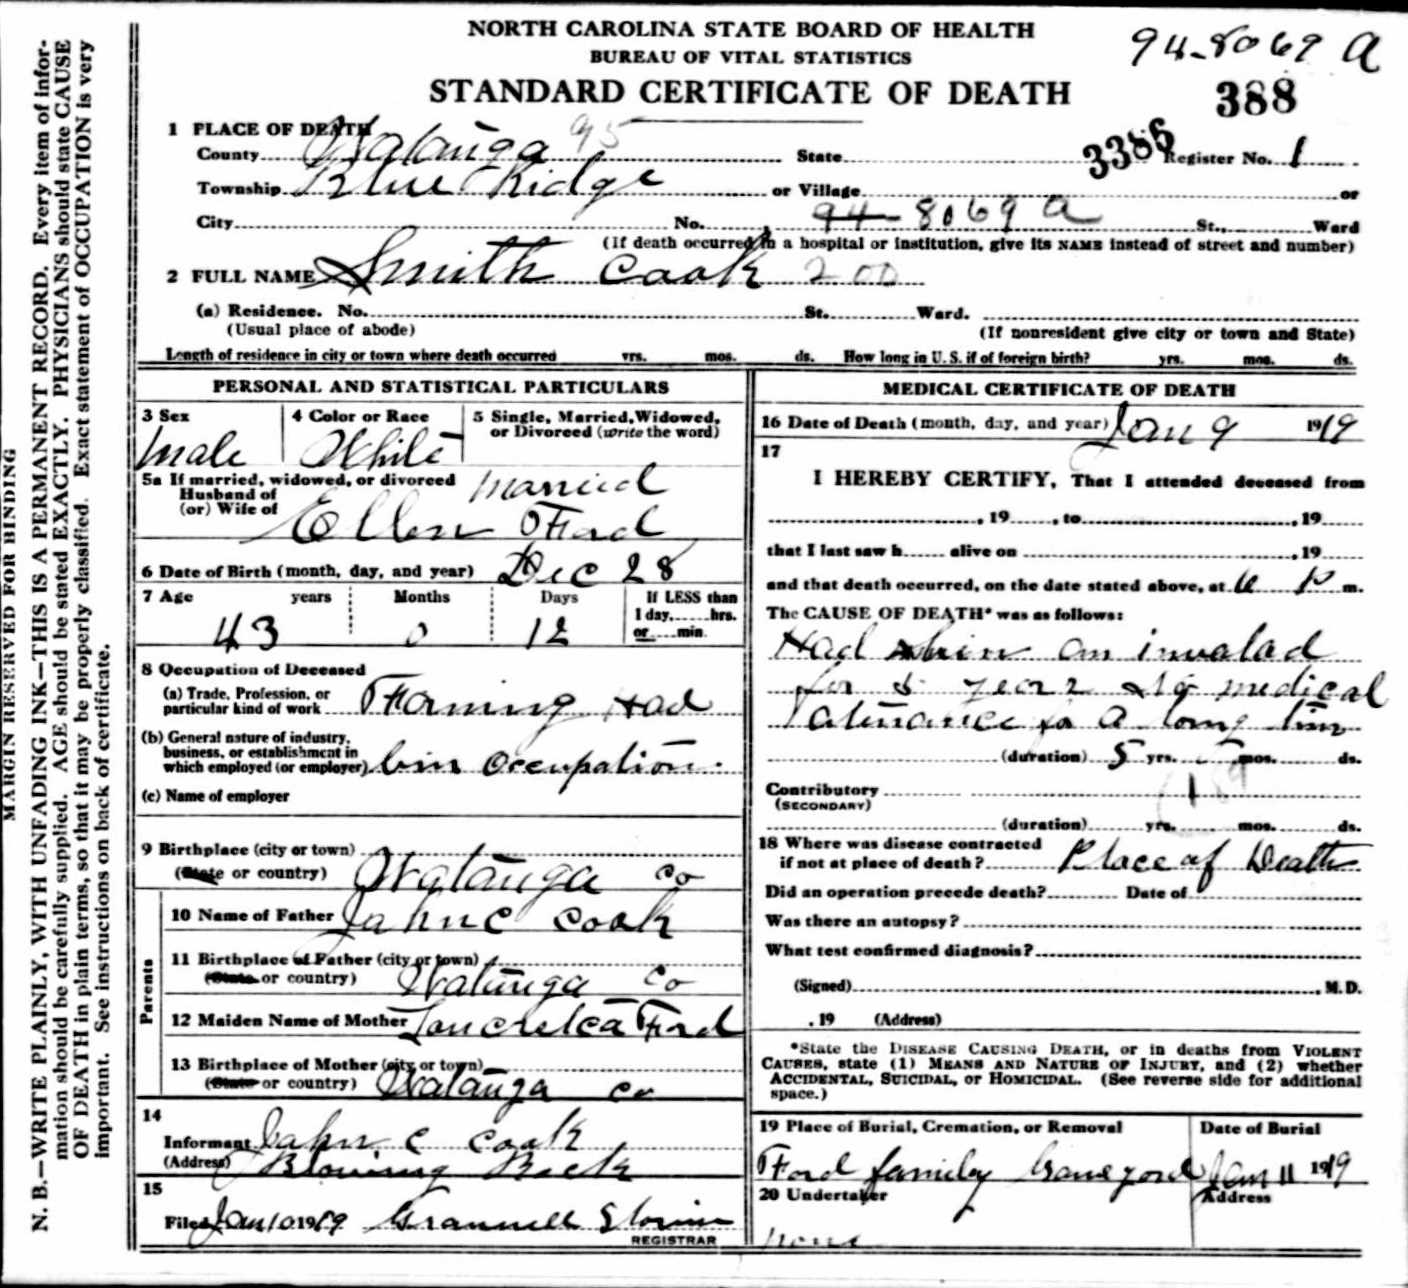 NORTH CAROLINA STATE BOARD OF HEALTH
BUREAU OF VITAL STATISTICS
STANDARD CERTIFICATE OF DEATH
94-8069 A
388
1 PLACE OF DEATH
County Watauga 95 State 3386 Register No. 1
Township Blue Ridge or Village or
City No. 94-8069 a St., Ward
(If death occurred in a hospital or institution, give its NAME instead of street and number)
2 FULL NAME Smith Cook 200
(a) Residence. No. St. Ward.
(Usual place of abode) (If nonresident give city or town and State)
Length of residence in city or town where death occurred yrs. mos. ds. How long in U. S. if of foreign birth? yrs. mos. ds.
PERSONAL AND STATISTICAL PARTICULARS
3 Sex 4 Color or Race 5 Single, Married, Widowed,
or Divorced (write the word)
Male White
married
5a If married, widowed, or divorced
Husband of
(or) Wife of
Ellen Ford
6 Date of Birth (month, day, and year) Dec 28
7 Age years Months Days If LESS than
1 day, hrs.
or min.
43 0 12
8 Occupation of Deceased
(a) Trade, Profession, or
particular kind of work Farming Had
(b) General nature of industry,
business, or establishment in
which employed (or employer) bin Occupation
(c) Name of employer
9 Birthplace (city or town)
(State or country) Watauga Co
Parents
10 Name of Father John C Cook
11 Birthplace of Father (city or town)
(State or country) Watauga Co
12 Maiden Name of Mother Ford
13 Birthplace of Mother (city or town)
(State or country) Watauga Co
14
Informant John C Cook
(Address) Blowing Rock
15
Filed Jan 10 1919
REGISTRAR
MEDICAL CERTIFICATE OF DEATH
16 Date of Death (month, day, and year) Jan 9 1919
17
I HEREBY CERTIFY, That I attended deceased from
, 19 , to , 19
that I last saw h alive on , 19
and that death occurred, on the date stated above, at 6 P m.
The CAUSE OF DEATH* was as follows:
Had bin an invalad
for 5 years no medical
for a long time
(duration) 5 yrs. mos. ds.
Contributory
(SECONDARY)
189
(duration) yrs. mos. ds.
18 Where was disease contracted
if not at place of death? Place of Death
Did an operation precede death? Date of
Was there an autopsy?
What test confirmed diagnosis?
(Signed) , M. D.
, 19 (Address)
*State the DISEASE CAUSING DEATH, or in deaths from VIOLENT
CAUSES, state (1) MEANS AND NATURE OF INJURY, and (2) whether
ACCIDENTAL, SUICIDAL, OR HOMICIDAL. (See reverse side for additional
space.)
19 Place of Burial, Cremation, or Removal Date of Burial
Ford family Jan 11 1919
20 Undertaker Address
none
MARGIN RESERVED FOR BINDING
N. B.—WRITE PLAINLY, WITH UNFADING INK—THIS IS A PERMANENT RECORD. Every item of infor-
mation should be carefully supplied. AGE should be stated EXACTLY. PHYSICIANS should state CAUSE
OF DEATH in plain terms, so that it may be properly classified. Exact statement of OCCUPATION is very
important. See instructions on back of certificate.